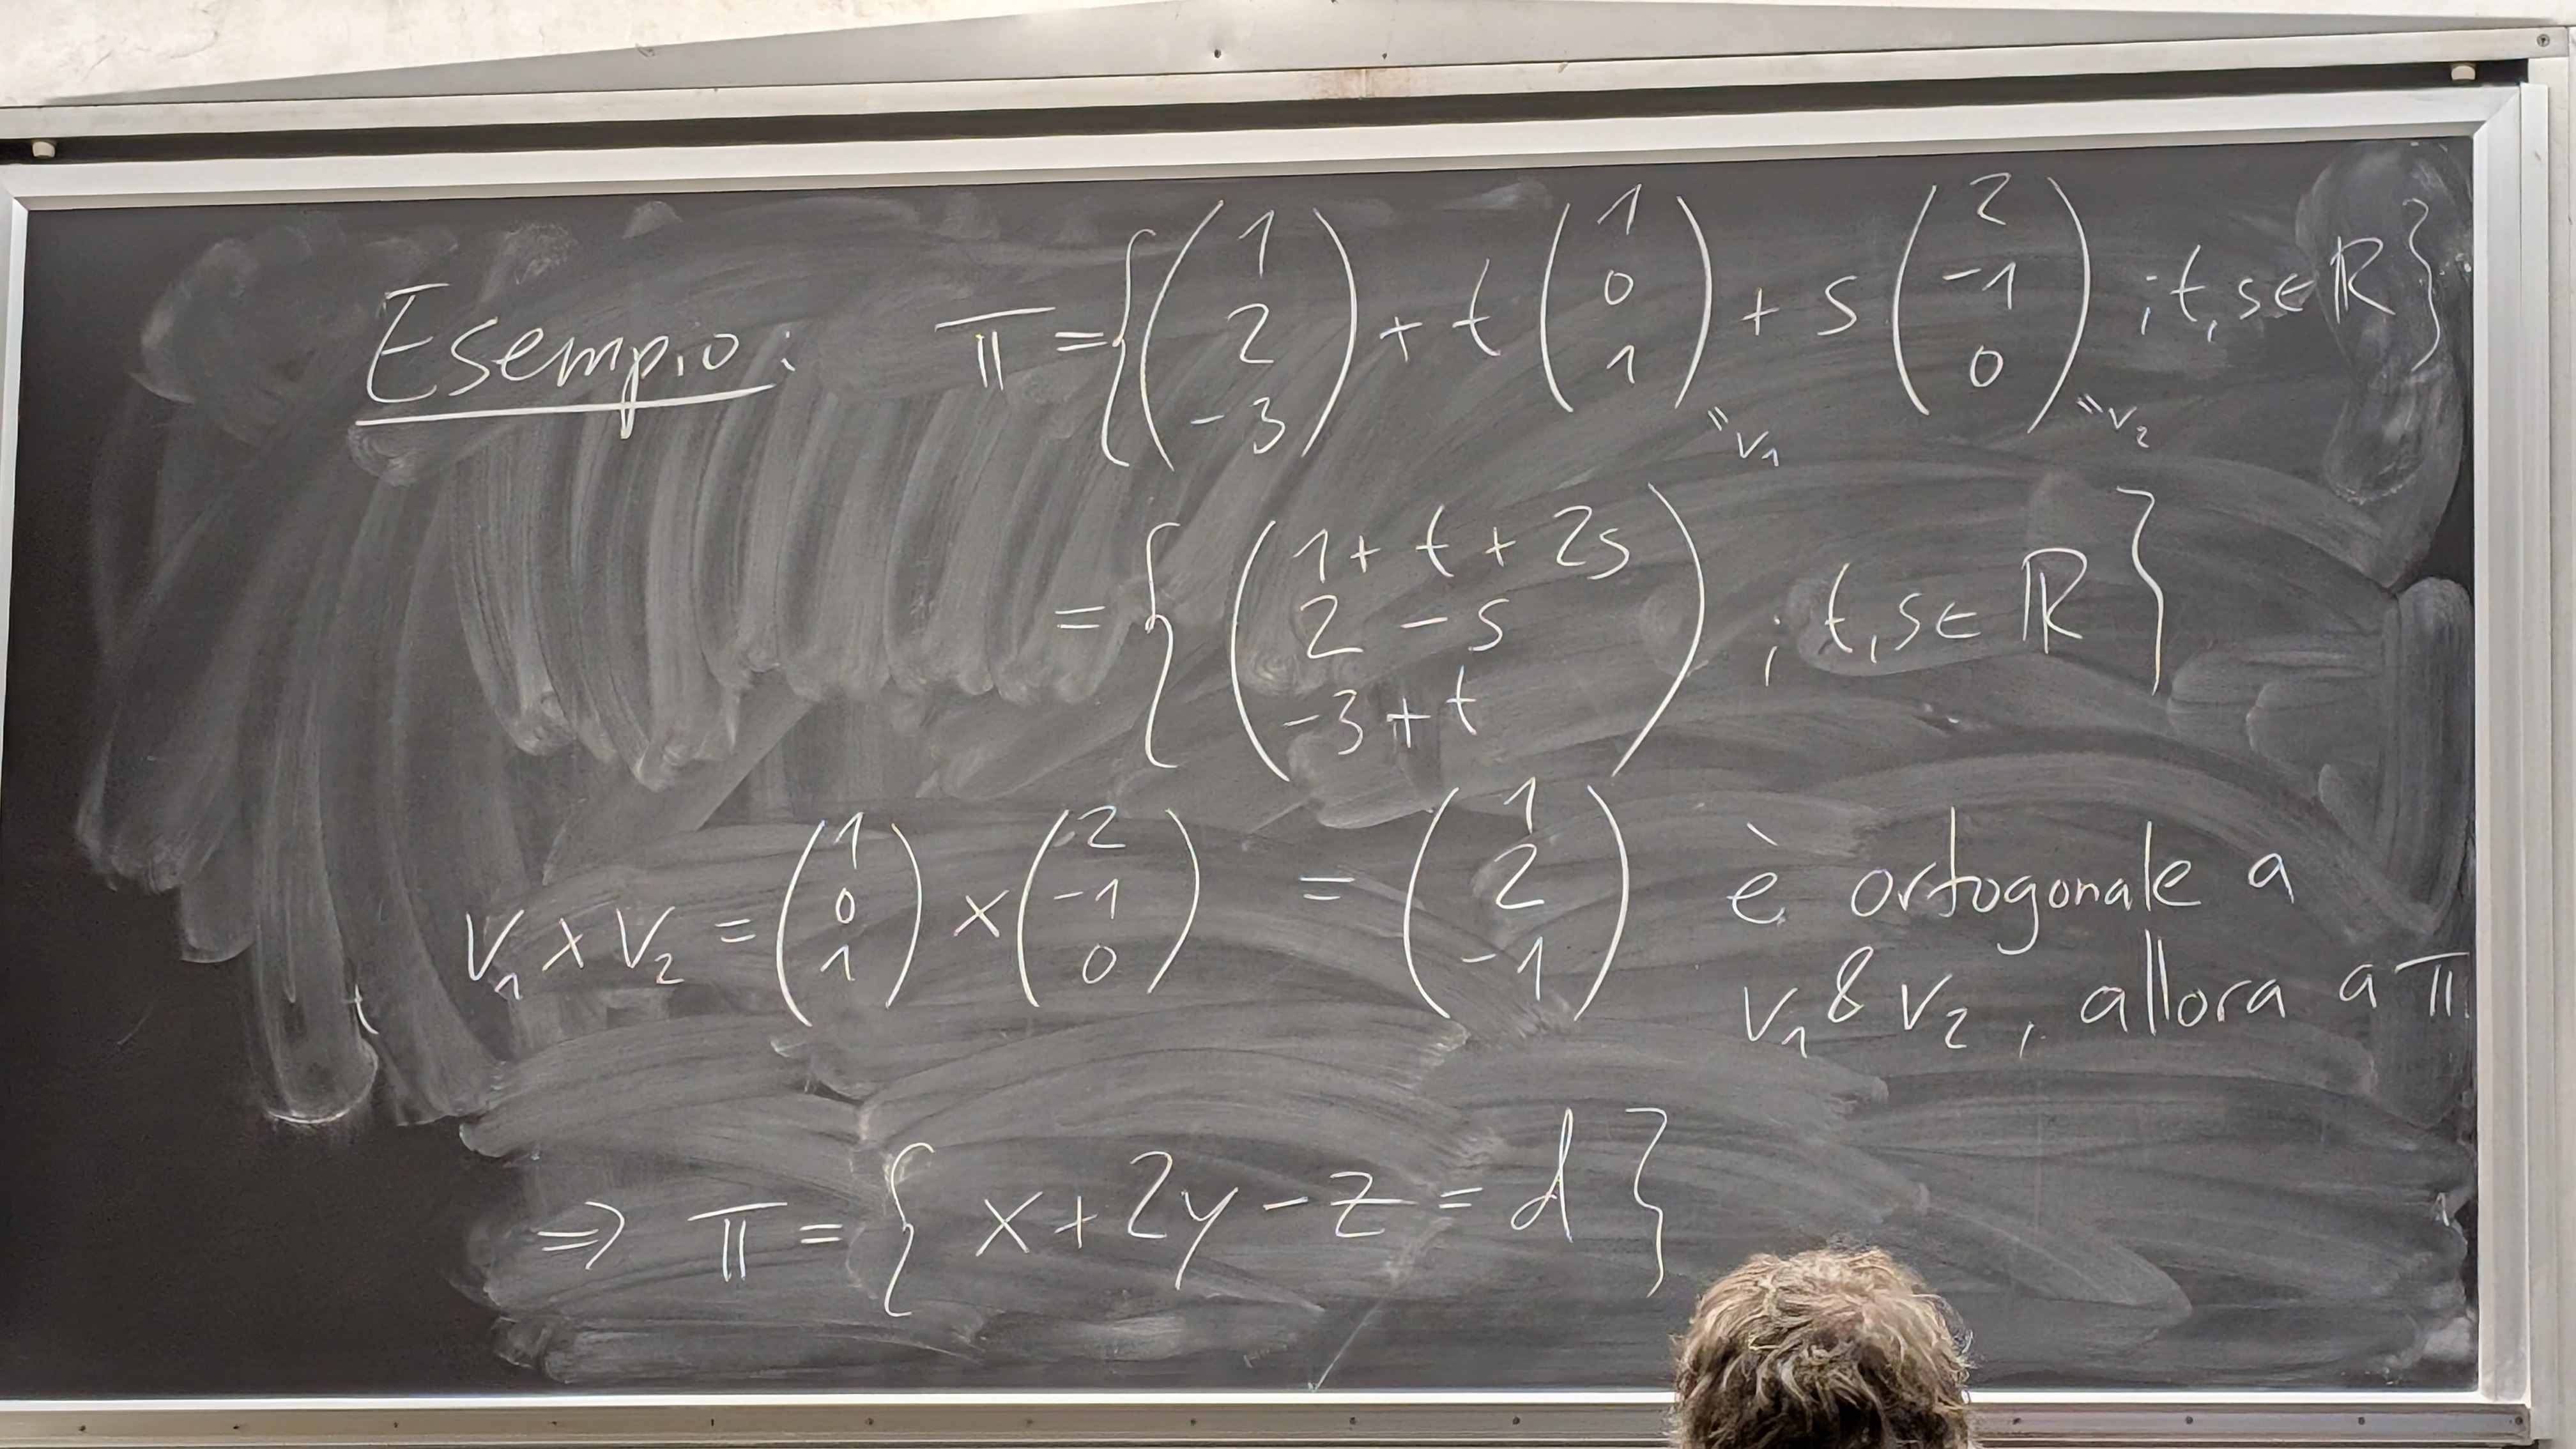 Esempio: π = { (1 2 -3) + t (1 0 1) + s (2 -1 0) ; t, s ∈ ℝ }
" v₁ " v₂
= { (1 + t + 2s 2 - s -3 + t) ; t, s ∈ ℝ }
v₁ × v₂ = (1 0 1) × (2 -1 0) = (1 2 -1) è ortogonale a
v₁ & v₂, allora a π
⇒ π = { x + 2y - z = d }